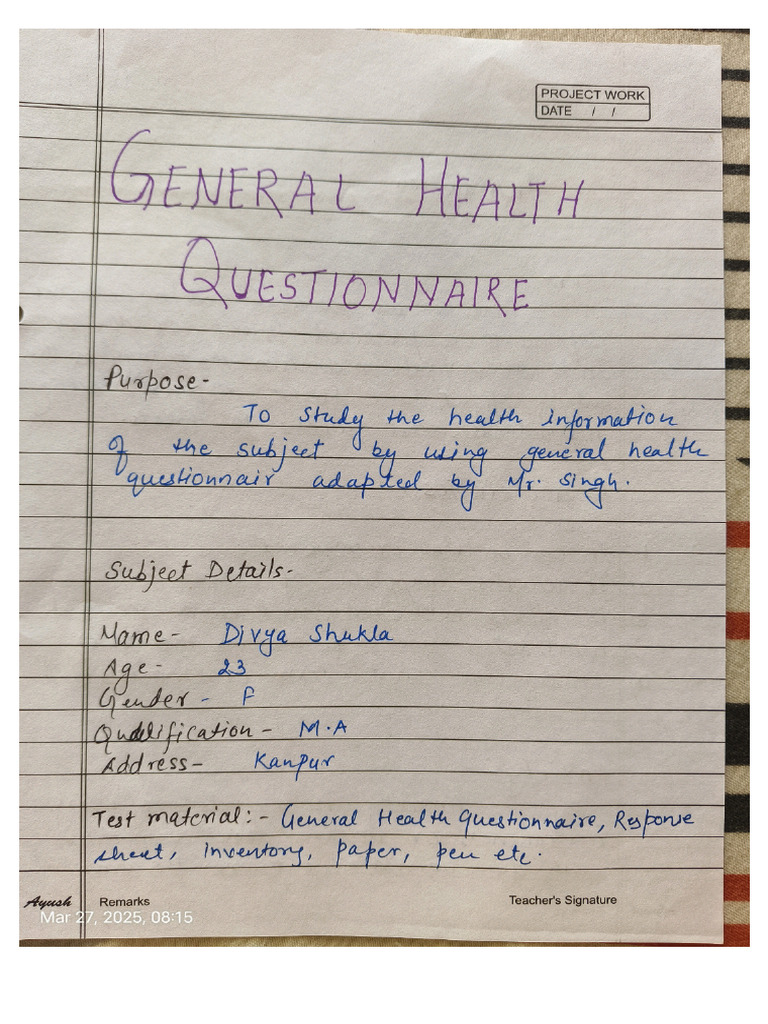 PROJECT WORK
DATE / /
GENERAL HEALTH
QUESTIONNAIRE
Purpose-
To study the health information
of the subject by using general health
questionnair adapted by Mr. Singh.
Subject Details-
Name- Divya Shukla
Age- 23
Gender- F
Qualification- M.A
Address- Kanpur
Test material:- General Health Questionnaire, Response
sheet, inventory, paper, pen etc.
Ayush Remarks Teacher's Signature
Mar 27, 2025, 08:15